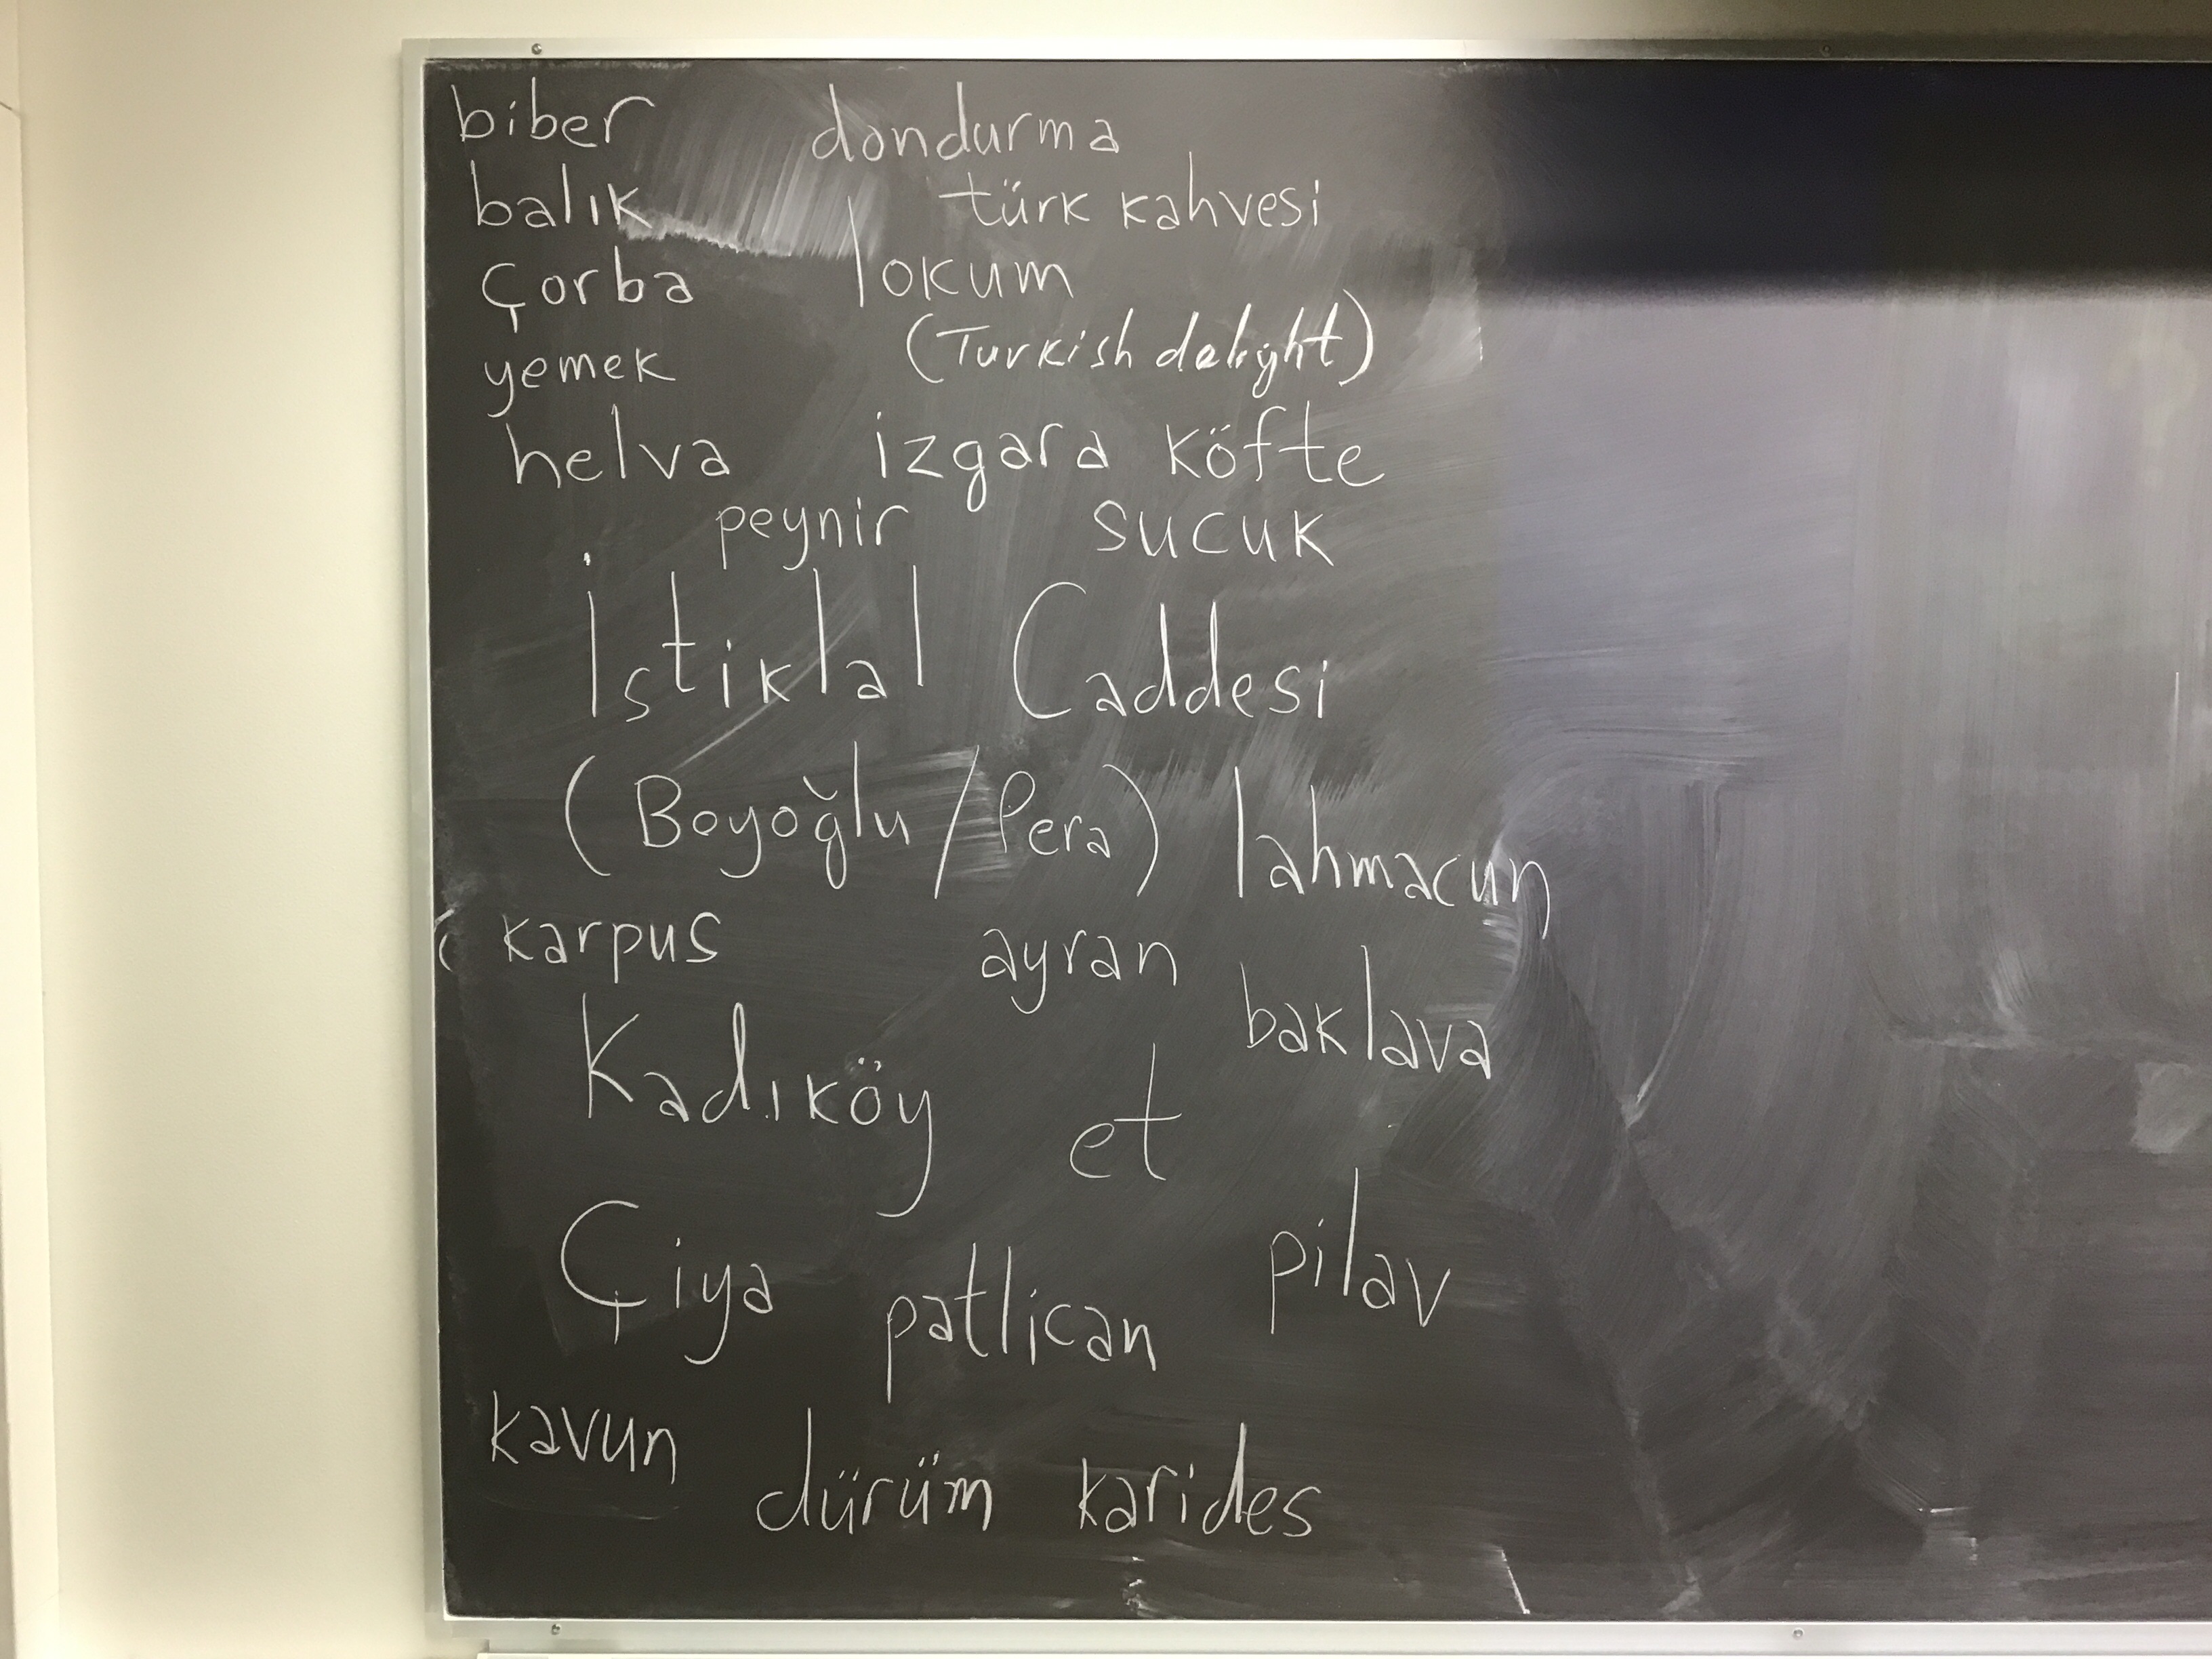 biber dondurma
balık türk kahvesi
çorba lokum
(Turkish delight)
yemek
helva izgara köfte
peynir sucuk
İstiklal Caddesi
(Beyoğlu/Pera) lahmacun
karpus ayran
baklava
Kadıköy et
Çiya patlican pilav
kavun dürüm karides